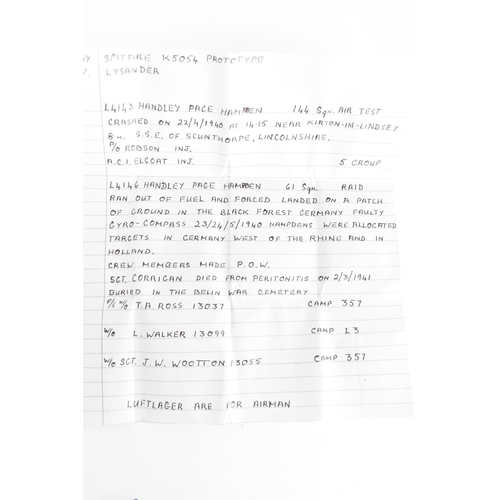 SPITFIRE K5054 PROTOTYPE
LYSANDER
L4143 HANDLEY PAGE HAMPDEN 144 Sqn. AIR TEST
CRASHED ON 22/4/1940 AT 14.15 NEAR KIRTON-IN-LINDSEY
8 m. S.S.E. OF SCUNTHORPE, LINCOLNSHIRE.
P/O ROBSON INJ.
A.C.I. ELCOAT INJ. 5 GROUP
L4146 HANDLEY PAGE HAMPDEN 61 Sqn. RAID
RAN OUT OF FUEL AND FORCED LANDED ON A PATCH
OF GROUND IN THE BLACK FOREST GERMANY FAULTY
GYRO-COMPASS 23/24/5/1940 HAMPDENS WERE ALLOCATED
TARGETS IN GERMANY WEST OF THE RHINE AND IN
HOLLAND.
CREW MEMBERS MADE P.O.W.
SGT. CORRIGAN DIED FROM PERITONITIS ON 2/3/1941
BURIED IN THE BELIN WAR CEMETERY
F/S W/O T.A. ROSS 13037 CAMP 357
W/O L. WALKER 13099 CAMP L3
W/O SGT. J.W. WOOTTON 13055 CAMP 357
LUFTLAGER ARE FOR AIRMAN